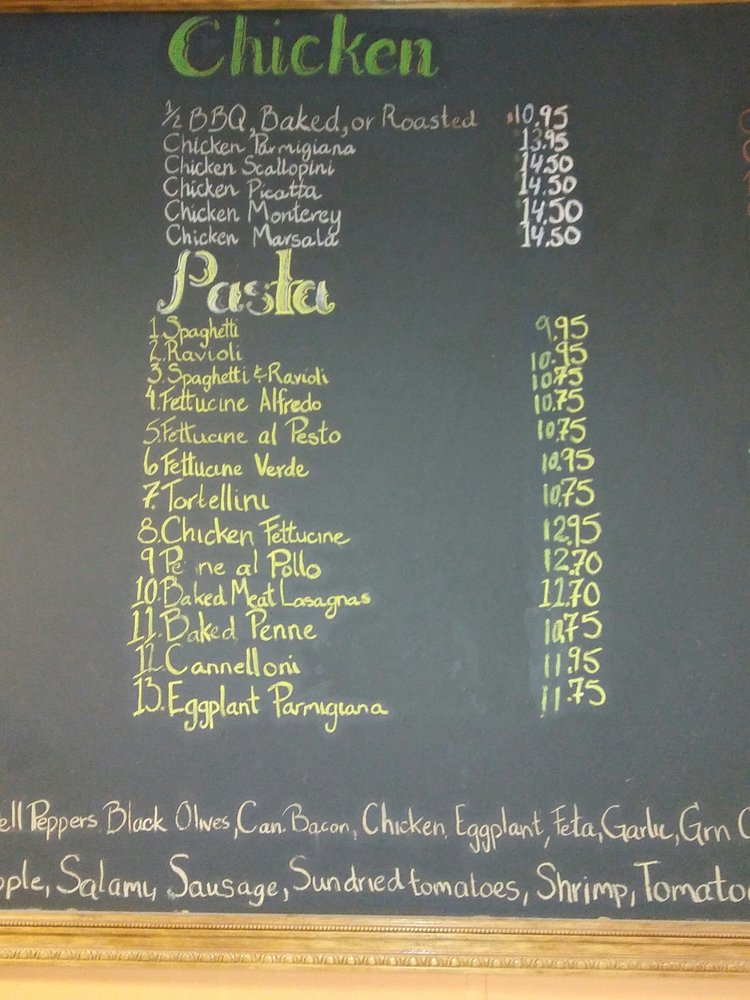 Chicken
½ BBQ, Baked, or Roasted $10.95
Chicken Parmigiana 13.95
Chicken Scallopini 14.50
Chicken Picatta 14.50
Chicken Monterey 14.50
Chicken Marsala 14.50
Pasta
1. Spaghetti 9.95
2. Ravioli 10.95
3. Spaghetti & Ravioli 10.75
4. Fettucine Alfredo 10.75
5. Fettucine al Pesto 10.75
6 Fettucine Verde 10.95
7. Tortellini 10.75
8. Chicken Fettucine 12.95
9 Pe ne al Pollo 12.70
10. Baked Meat Lasagnas 11.70
11. Baked Penne 10.75
12. Cannelloni 11.95
13. Eggplant Parmigiana 11.75
ell Peppers, Black Olives, Can. Bacon, Chicken, Eggplant, Feta, Garlic, Grn
pple, Salami, Sausage, Sundried tomatoes, Shrimp, Tomato